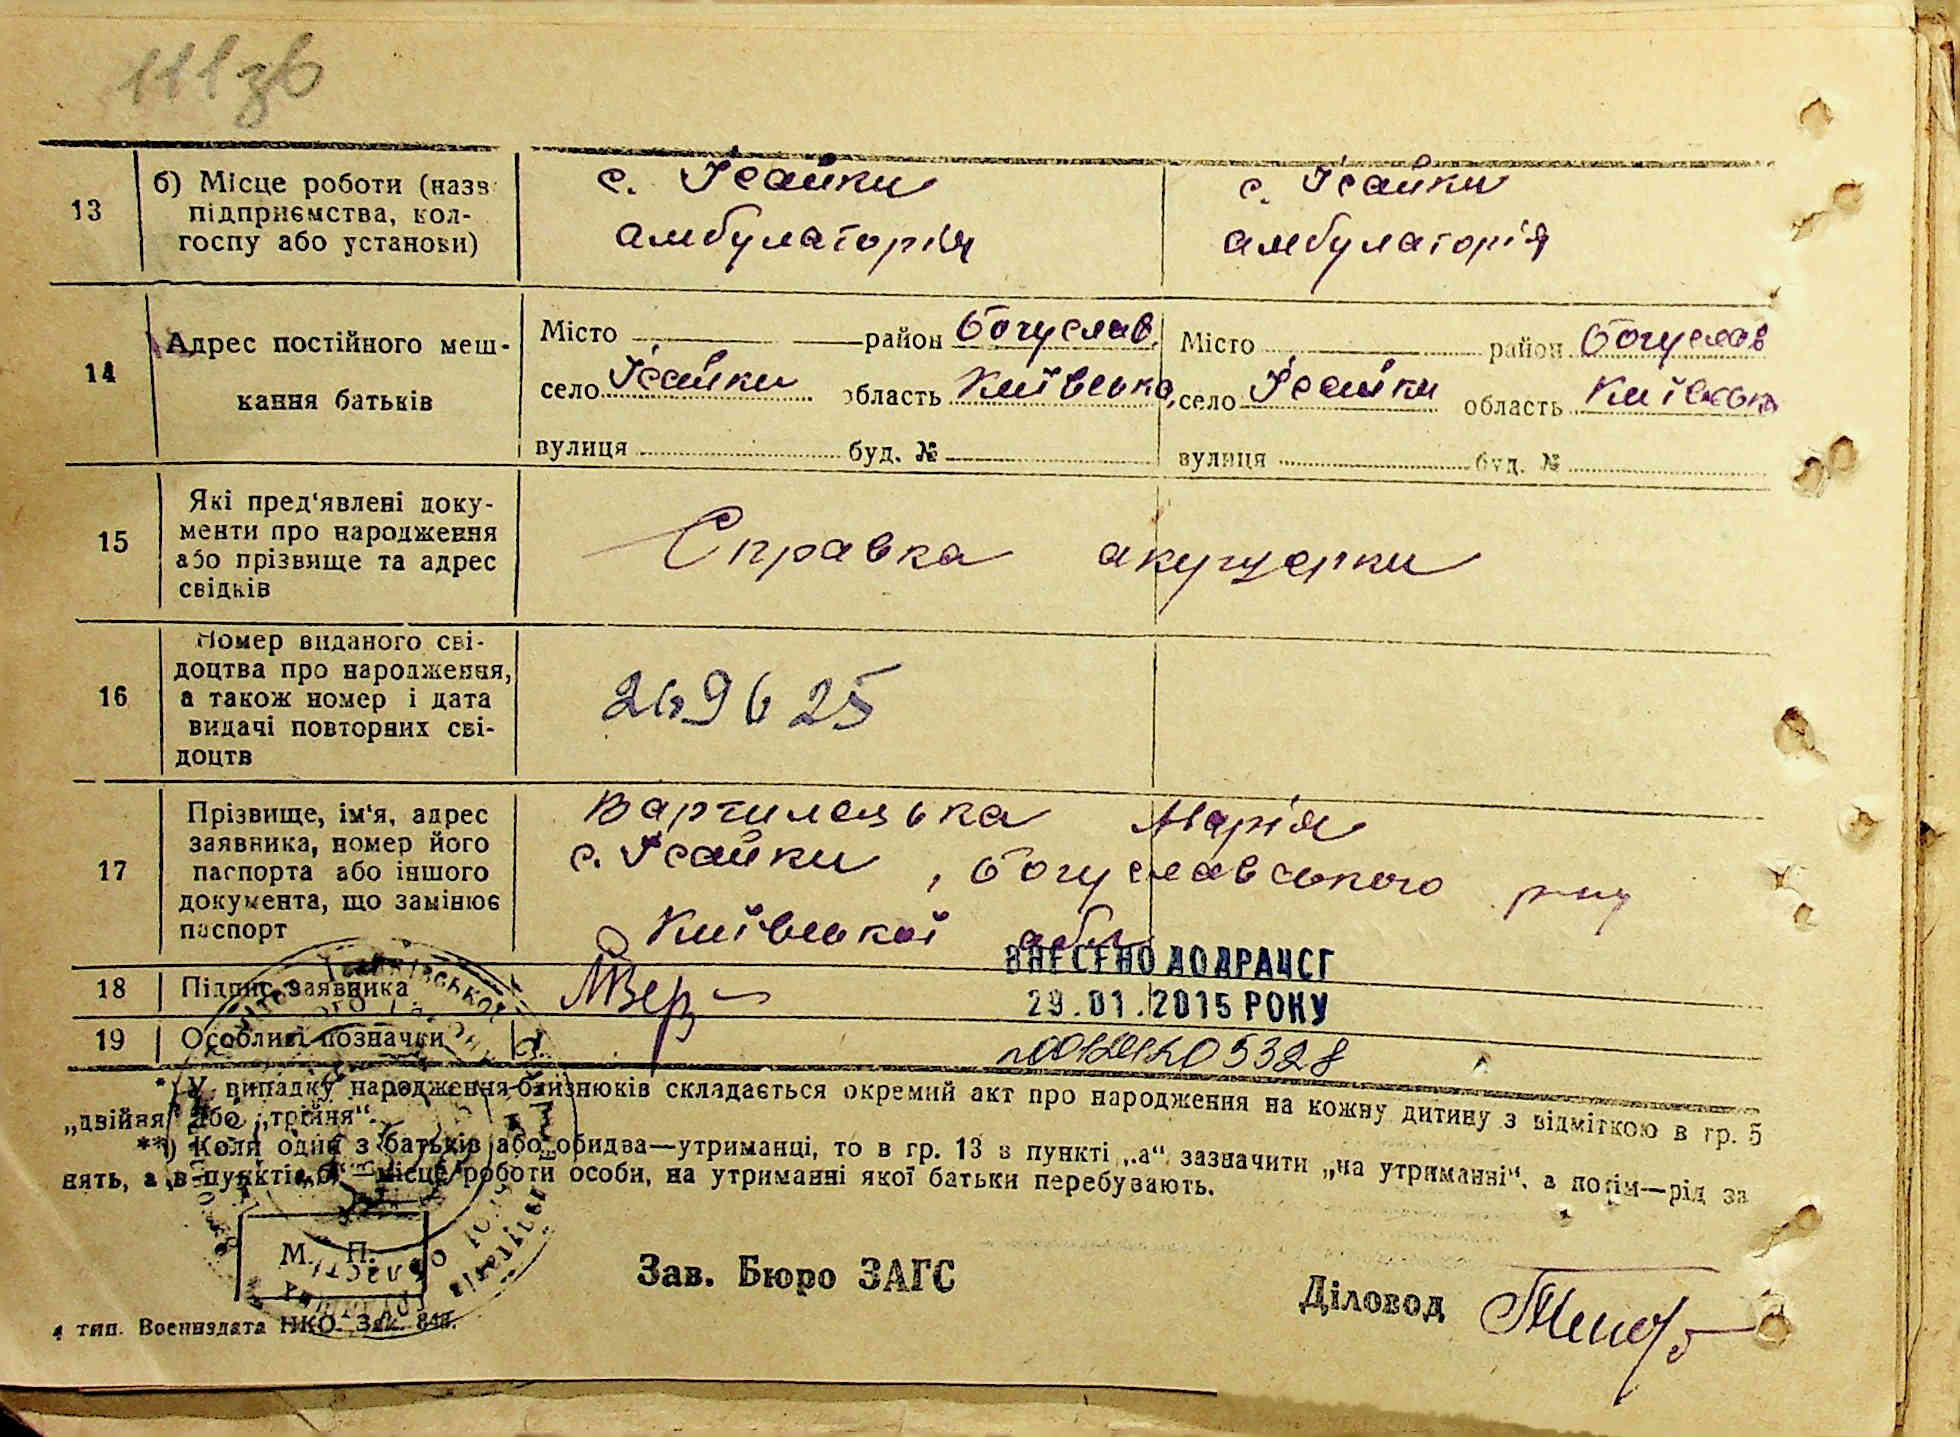 111зв
13
б) Місце роботи (назв
підприємства, кол-
госпу або установи)
с. Ісайки
амбулаторія
с. Ісайки
амбулаторія
14
Адрес постійного меш-
кання батьків
Місто район Богуслав.
село Ісайки область Київська,
вулиця буд. №
Місто район Богуслав
село Ісайки область Київська
вулиця буд. №
15
Які пред‘явлені доку-
менти про народження
або прізвище та адрес
свідків
Справка акушерки
16
Номер виданого сві-
доцтва про народження,
а також номер і дата
видачі повторних сві-
доцтв
269625
17
Прізвище, ім‘я, адрес
заявника, номер його
паспорта або іншого
документа, що замінює
паспорт
Марія
с. Ісайки, Богуславського р-ну
Київської обл
18
Підпис заявника
ВНЕСЕНО ДО ДРАЦСГ
29.01.2015 РОКУ
19
Особливі позначки
*) У випадку народження близнюків складається окремий акт про народження на кожну дитину з відміткою в гр. 5
„двійня“ або „трійня“.
**) Коли один з батьків або обидва—утриманці, то в гр. 13 в пункті „а“ зазначити „на утриманні“, а потім—рід за
нять, а в пункті „б“—місце роботи особи, на утриманні якої батьки перебувають.
М. П.
Зав. Бюро ЗАГС
Діловод
тип. Воениздата НКО. Зак.